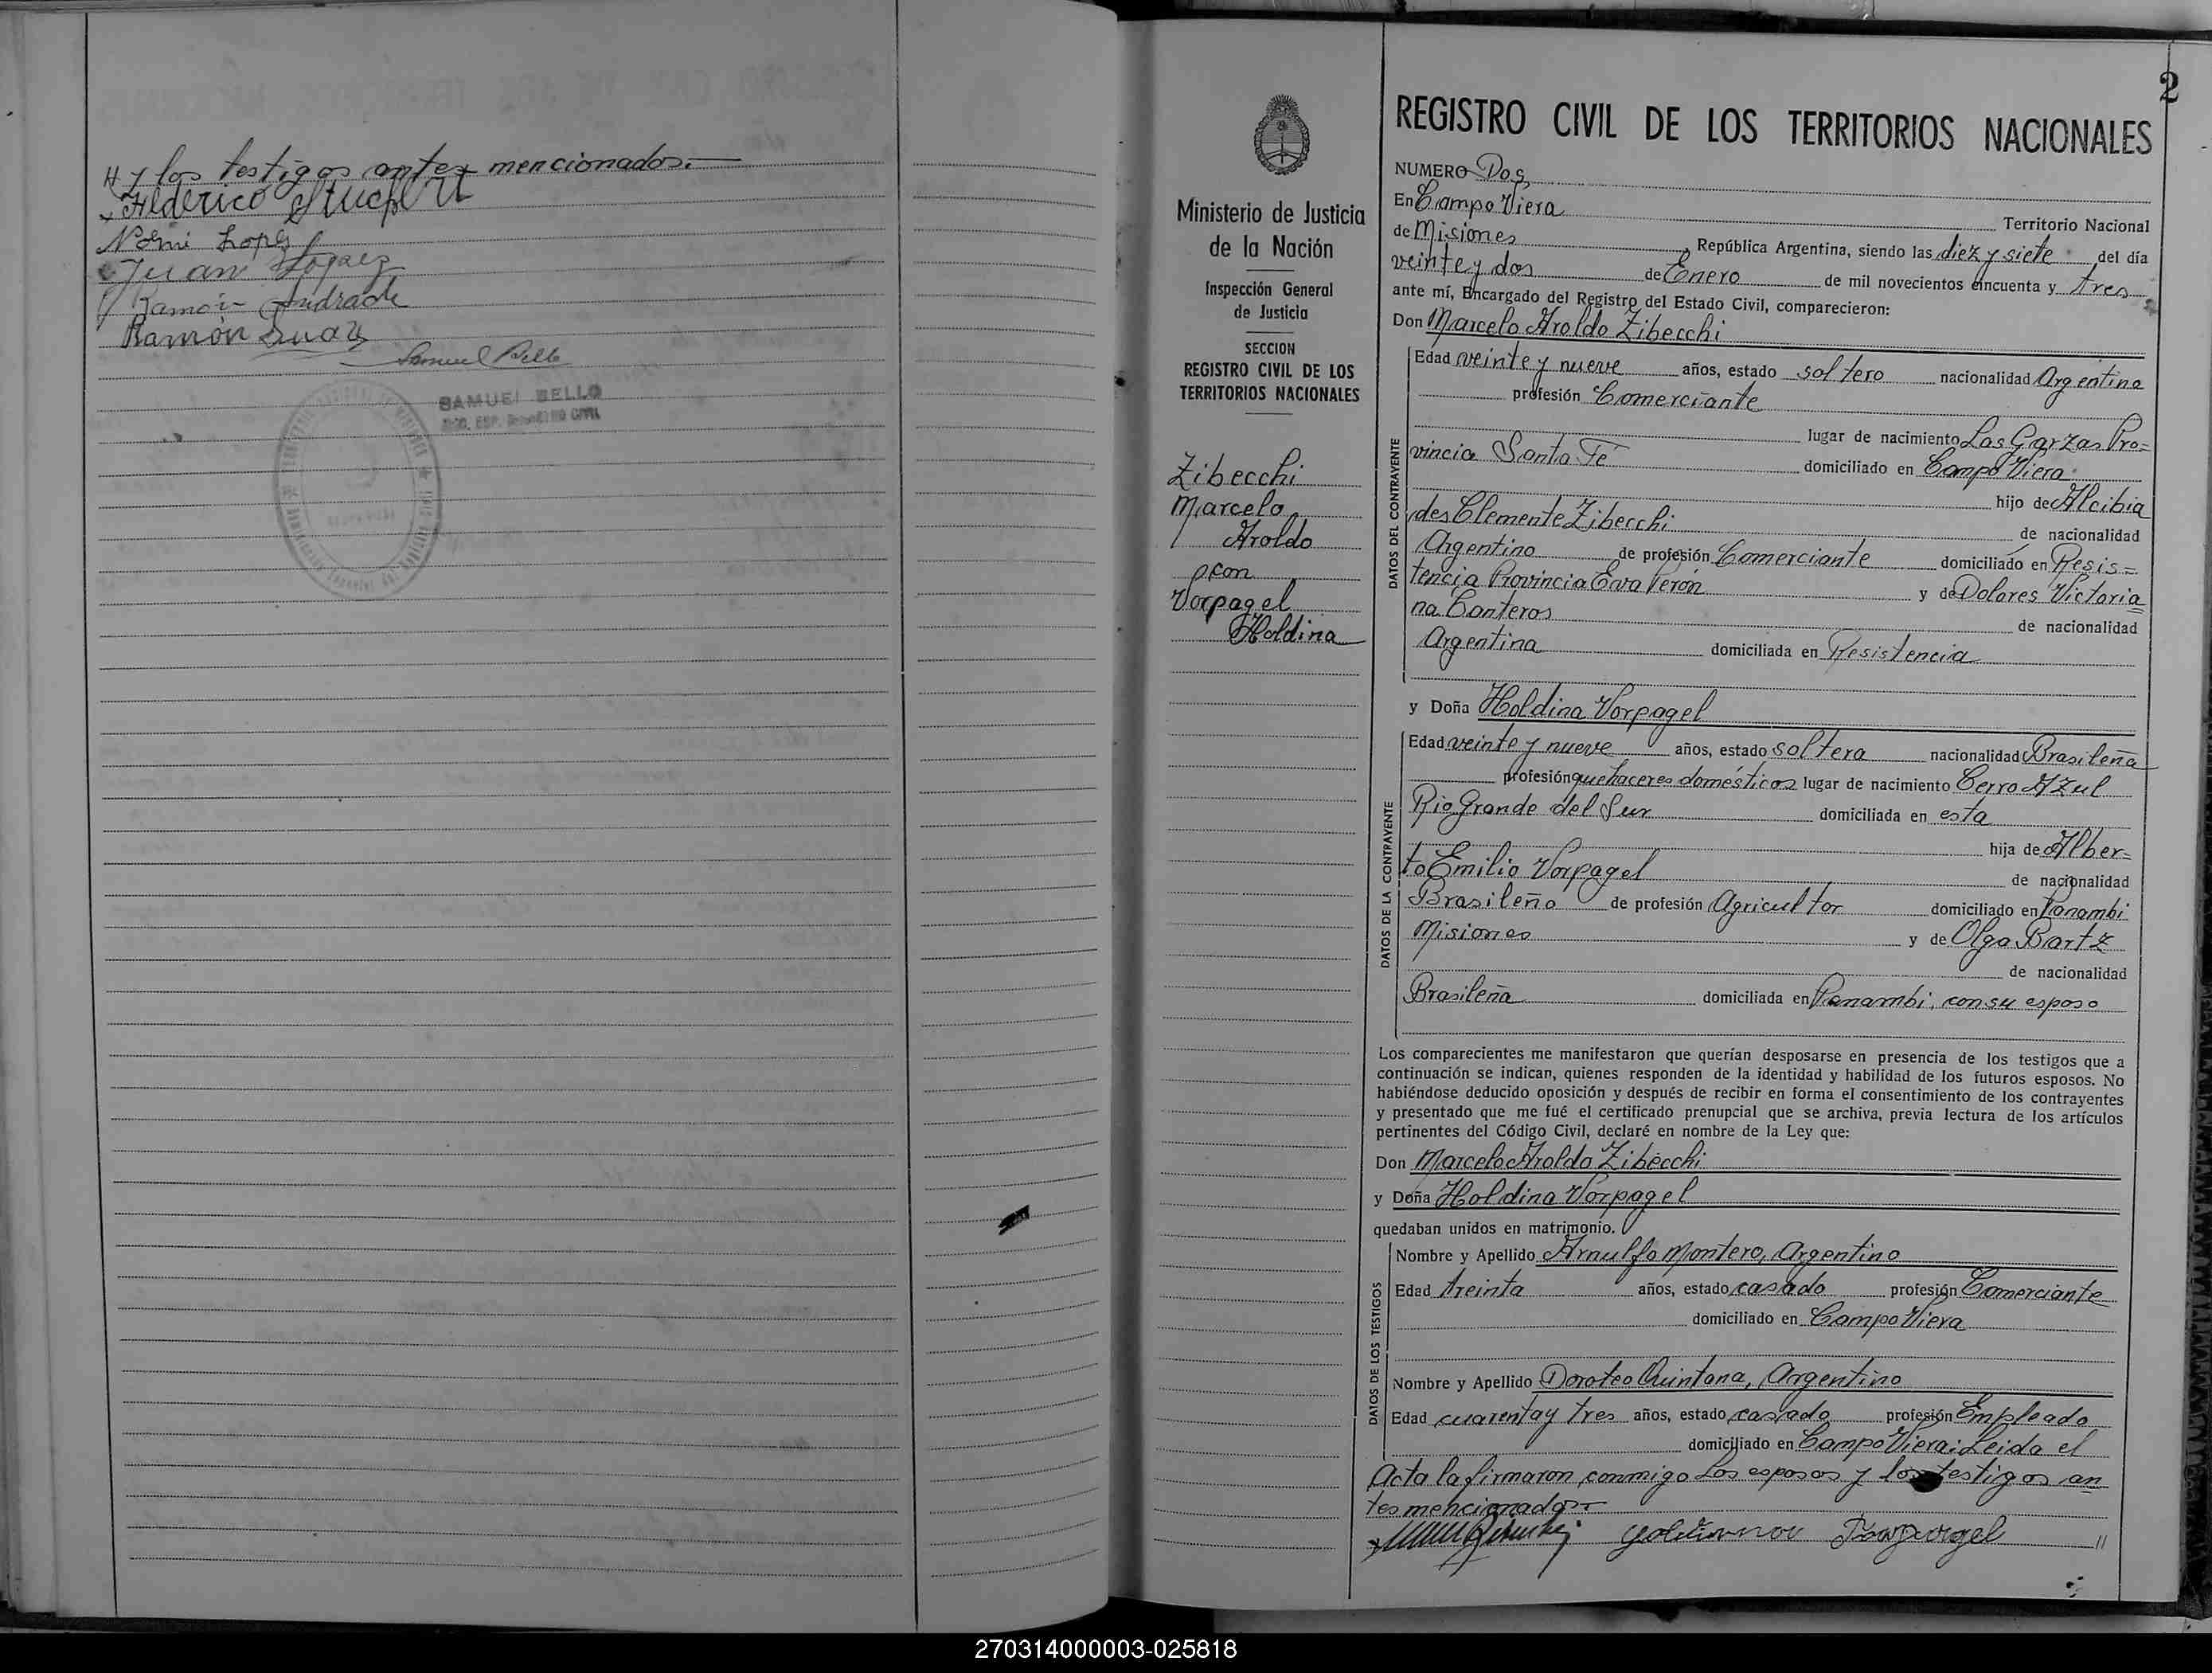 y los testigos antes mencionados.
Federico
Noemi Lopez
Juan
Ramón Andrade
Ramón
Samuel Bello
SAMUEL BELLO
2
REGISTRO CIVIL DE LOS TERRITORIOS NACIONALES
Ministerio de Justicia
de la Nación
Inspección General
de Justicia
SECCION
REGISTRO CIVIL DE LOS
TERRITORIOS NACIONALES
Zibecchi
Marcelo
Aroldo
con
Vorpagel
Holdina
NUMERO Dos
En Campo Viera Territorio Nacional
de Misiones, República Argentina, siendo las diez y siete del día
veinte y dos de Enero de mil novecientos cincuenta y tres
ante mí, Encargado del Registro del Estado Civil, comparecieron:
Don Marcelo Aroldo Zibecchi
DATOS DEL CONTRAYENTE
Edad veinte y nueve años, estado soltero nacionalidad Argentina
profesión Comerciante
lugar de nacimiento Las Garzas Pro=
vincia Santa Fé domiciliado en Campo Viera
hijo de Alcibia
des Clemente Zibecchi de nacionalidad
Argentino de profesión Comerciante domiciliado en Resis=
tencia Provincia Eva Perón y de Dolores Victoria
na Canteros de nacionalidad
Argentina domiciliada en Resistencia
y Doña Holdina Vorpagel
DATOS DE LA CONTRAYENTE
Edad veinte y nueve años, estado soltera nacionalidad Brasileña
profesión quehaceres domésticos lugar de nacimiento Cerro Azul
Rio Grande del Sur domiciliada en esta
hija de Alber=
to Emilio Vorpagel de nacionalidad
Brasileño de profesión Agricultor domiciliado en Panambi
Misiones y de Olga Bartz
de nacionalidad
Brasileña domiciliada en Panambi, con su esposo
Los comparecientes me manifestaron que querían desposarse en presencia de los testigos que a
continuación se indican, quienes responden de la identidad y habilidad de los futuros esposos. No
habiéndose deducido oposición y después de recibir en forma el consentimiento de los contrayentes
y presentado que me fué el certificado prenupcial que se archiva, previa lectura de los artículos
pertinentes del Código Civil, declaré en nombre de la Ley que:
Don Marcelo Aroldo Zibecchi
y Doña Holdina Vorpagel
quedaban unidos en matrimonio.
DATOS DE LOS TESTIGOS
Nombre y Apellido Arnulfo Montero, Argentino
Edad treinta años, estado casado profesión Comerciante
domiciliado en Campo Viera
Nombre y Apellido Doroteo Quintana, Argentino
Edad cuarenta y tres años, estado casado profesión Empleado
domiciliado en Campo Viera: Leida el
Acta la firmaron conmigo los esposos y los testigos an
tes mencionados
270314000003-025818